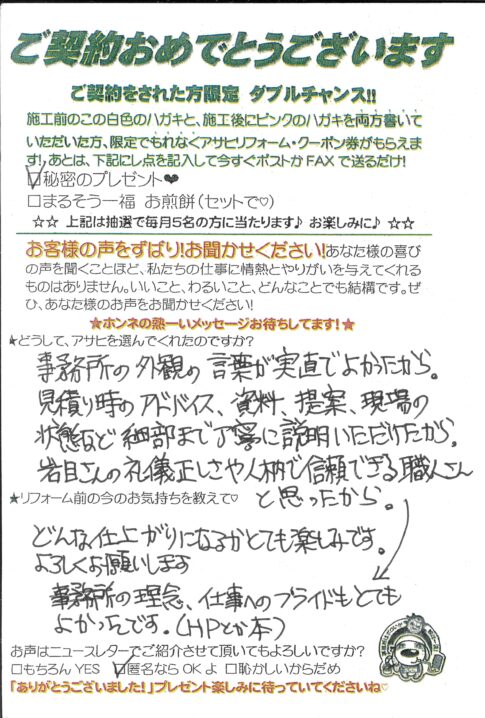 ご契約おめでとうございます
ご契約をされた方限定 ダブルチャンス!!
施工前のこの白色のハガキと、施工後にピンクのハガキを両方書いて
いただいた方、限定でもれなくアサヒリフォーム・クーポン券がもらえま
す!あとは、下記にレ点を記入して今すぐポストかFAXで送るだけ!
☑秘密のプレゼント❤
□まるそう一福 お煎餅(セットで♡)
☆☆ 上記は抽選で毎月5名の方に当たります♪ お楽しみに♪ ☆☆
お客様の声をずばり!お聞かせください!あなた様の喜び
の声を聞くことほど、私たちの仕事に情熱とやりがいを与えてくれる
ものはありません。いいこと、わるいこと、どんなことでも結構です。ぜ
ひ、あなた様のお声をお聞かせください!
★ホンネの熱ーいメッセージお待ちしてます!★
★どうして、アサヒを選んでくれたのですか?
事務所の外観の言葉が実直でよかったから。
見積り時のアドバイス、資料、提案、現場の
状態など細部まで丁寧に説明いただけたから。
岩目さんの礼儀正しさや人柄で信頼できる職人さん
と思ったから。
★リフォーム前の今のお気持ちを教えて♡
どんな仕上がりになるかとても楽しみです。
よろしくお願いします
事務所の理念、仕事へのプライドもとても
よかったです。(HPとか本)
お声はニュースレターでご紹介させて頂いてもよろしいですか?
□もちろんYES ☑匿名ならOKよ □恥かしいからだめ
「ありがとうございました!」プレゼント楽しみに待っていてくださいね♡